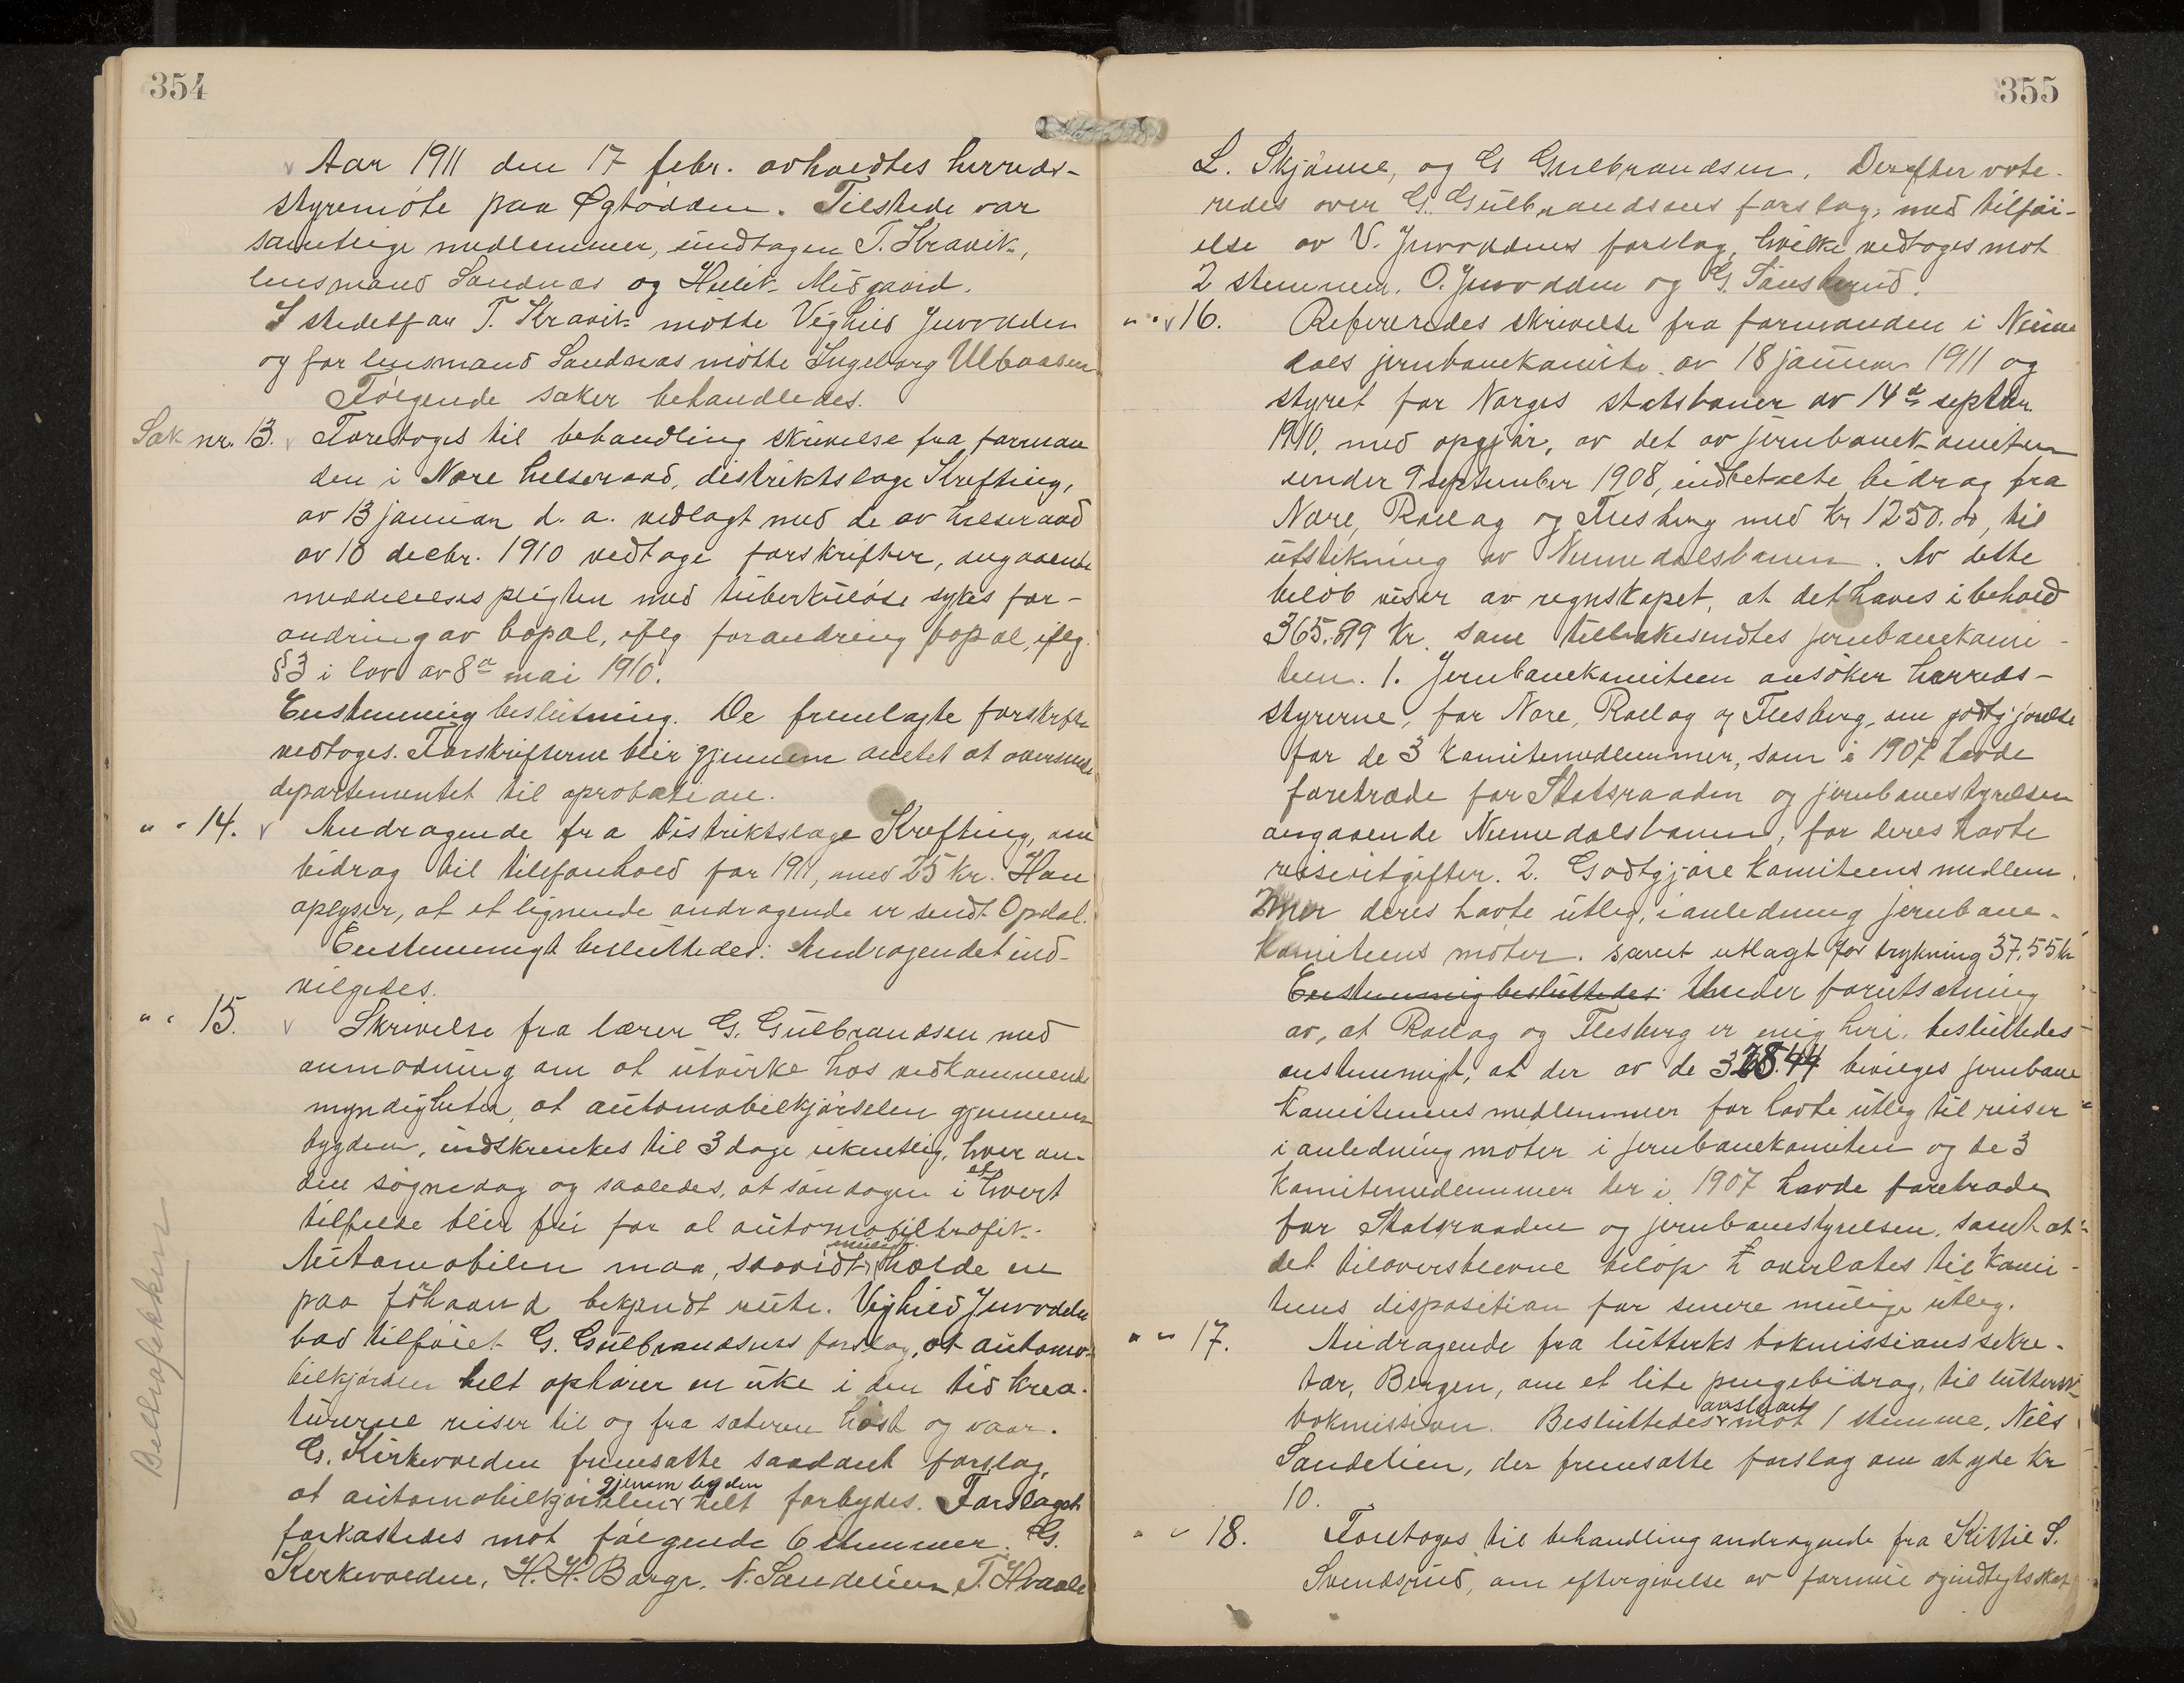 354
Aar 1911 den 17 febr. avholdtes herreds-
styremöte paa Øgtødden. Tilstede var
samtlige medlemmer, undtagen T. Kravik,
lensmand Sandnæs og Helik Midgaard.
I stedetfor T. Kravik mötte Veghied Juvodden
og for lensmand Sandnæs mötte Ingeborg Ulbaasen
Fölgende saker behandledes.
Sak nr. 13. Foretoges til behandling skrivelse fra forman
den i Nore helseraad, distriktslæge Krefting,
av 13 januar d. a. vedlagt med de av helseraad
av 10 decbr. 1910 vedtage forskrifter, angaaende
meddelelsesspligten med tüberkulöse sykes for-
andring av bopæl, ifölg forandring bopæl, ifølg
§3 i lov av 8de mai 1910.
Enstemmig beslutning. De fremlagte forskrifter
vedtoges. Forskrifterne blir gjennem amtet at oversende
departementet til aprobation.
" " 14. Andragende fra Distriktslæge Krefting, om
bidrag til telefonhold for 1911, med 25 kr. Han
oplyser, at et lignende andragende er sendt Opdal.
Enstemmigt besluttedes: Andragendet ind-
vilgedes.
" " 15. Skrivelse fra lærer G. Gulbrandsen med
anmodning om at utvirke hos vedkommende
myndigheter, at automobilkjörselen gjennem
bygden, indskrenkes til 3 dage ukentlig, hver an-
den sögnedag og saaledes, at söndagen i et hvert
tilfælde blir fri for al automobiltrafik.
Automobilen maa, saavidt muligt holde en
paa förhaand bekjendt rute. Veghied Juvodden
bad tilföiet G. Gulbrandsens forslag, at automo-
bilkjörslen helt ophörer en uke i den tid krea-
turerne reiser til og fra sæteren höst og vaar.
G. Kirkevolden fremsatte saadant forslag,
at automobilkjörselen gjennem bygden helt forbydes. Forslaget
forkastedes mot fölgende 6 stemmer. G.
Kirkevolden, H. H. Berge, N. Sandelien, T. Hvaale
Beltrafikken
355
L. Skjönne, og G Gulbrandsen. Derefter vote-
redes over G. Gulbrandsens forslag, med tilföi-
else av V. Juvoddens forslag, hvilke vedtoges mot
2 stemmer. O. Juvodden og G. Sönsterud.
" " 16. Refereredes skrivelse fra formanden i Nume
dals jernbanekomite av 18 januar 1911 og
styret for Norges statsbaner av 14de septbr.
1910, med opgjör, av det av jernbanekomiteen
under 9 september 1908, indbetalte bidrag fra
Nore, Rollag og Flesberg med kr 1250.00, til
utstikning av Numedalsbanen. Av dette
belöb viser av regnskapet, at det haves i behold
365.89 kr. som tilbakesendtes jernbanekomi-
teen. 1. Jernbanekomiteen ansöker herreds-
styrerne, for Nore, Rollag og Flesberg, om godtgjörelse
for de 3 komitemedlemmer, som i 1907 havde
foretræde for Statsraaden og jernbanestyrelsen
angaaende Numedalsbanen, for deres havte
reiseutgifter. 2. Godtgjöre komiteens medlem
mer deres havte utlæg, i anledning jernbane-
komiteens möter. samt utlagt for trykning 37.55 kr
Enstemmig besluttedes: Under forutsætning
av, at Rollag og Flesberg er enig heri, besluttedes
enstemmigt, at der av de 328.44 bevilges jernbane
komiteens medlemmer for havte utlæg til reiser
i anledning möter i jernbanekomiteen og de 3
komitemedlemmer der i 1907 havde foretræde
for Statsraaden og jernbanestyrelsen, samt at
det tiloversblevne belöp overlates til komi-
teens disposition for senere mulige utlæg.
" " 17. Andragende fra lutherks bokmissionssekre-
tær, Bergen, om et lite pengebidrag, til luthersk
bokmission. Besluttedes avslaat mot 1 stemme, Nels
Sandelien, der fremsatte forslag om at yde kr
10.
" " 18. Foretoges til behandling andragende fra Kittil S.
Svendsrud, om eftergivelse av formue og indtægtsskat